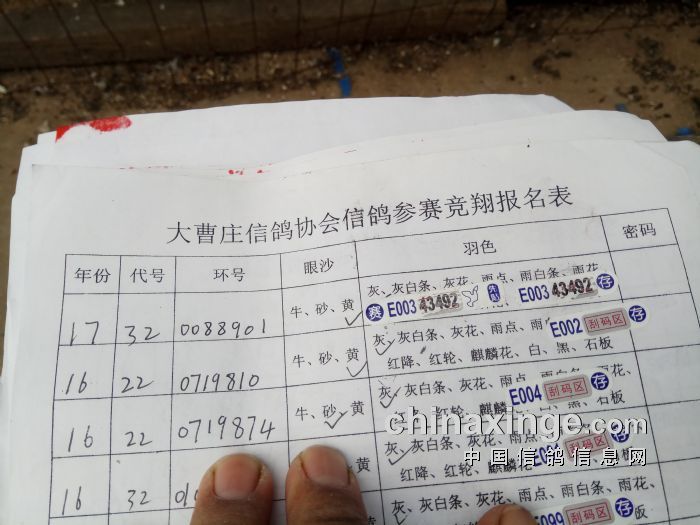 大曹庄信鸽协会信鸽参赛竞翔报名表
年份 代号 环号 眼沙 羽色 密码
17 32 0088901 牛、砂、黄 灰、灰白条、灰花、雨点、雨白条、雨花
赛 E003 43492 E003 43492 存
16 22 0719810 牛、砂、黄 灰、灰白条、灰花、雨点、雨 E002 刮码区 存
红降、红轮、麒麟花、白、黑、石板
16 22 0719874 牛、砂、黄 灰、灰白条、灰花、雨点、雨白条、雨花、
红降、红轮、麒麟 E004 刮码区 存 石板
16 32 黄 灰、灰白条、灰花、雨点、
红降、红轮、麒麟 刮码区 存
灰、灰白条、灰花、雨点、雨白条、雨花、
E099 刮码区 存 板
chinaxinge.com
中国信鸽信息网